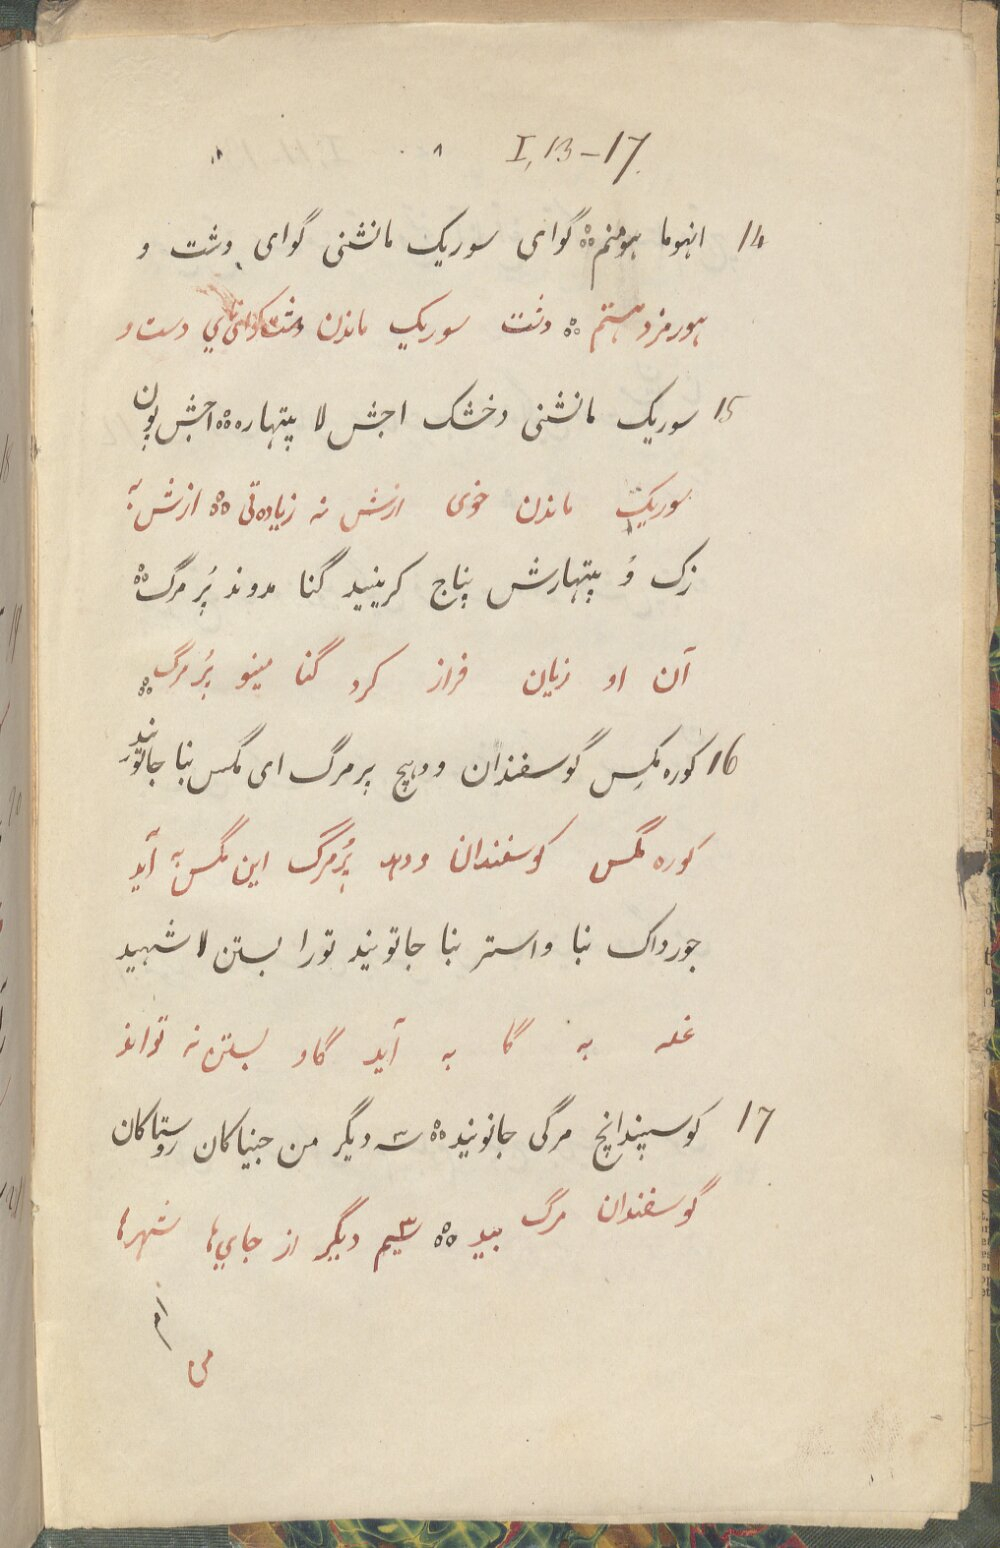 I, 13-17.
14 انهوما هومنم ؛ گوای سوریک مانشنی گوای دشت و
هورمزد هستم ؛ دشت سوریک ماندن دست و
15 سوریک مانشنی دخشک اجش لا پتهاره ؛ اجش پون
سوریک ماندن خوی ازش نه زیادتی ؛ ازش به
زک و پتهارش پناج کرینید گنا مدوند پُر مرگ ؛
آن او زیان فراز کرد گنا مینو پُر مرگ ؛
16 کوره مگس گوسفندان و دهیچ پر مرگ ای مگس بنا جاتویند
کوره مگس کوسفندان و دهد پُر مرگ این مگس به آید
جورداک بنا واستر بنا جاتویند تورا بستن لا شهید
غله به گا به آید گاو بستن نه تواند
17 کوسپندانچ مرگی جاتویند ؛ سه دیگر من جنیاکان روستاکان
گوسفندان مرگ بید ؛ سیم دیگر از جایها شهرها
ام
می